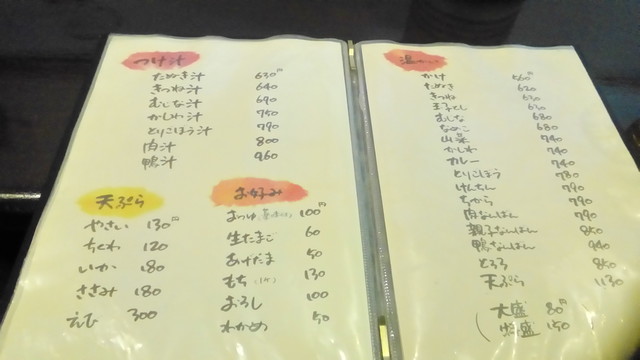 つけ汁
たぬき汁 630円
きつね汁 640
むじな汁 690
かしわ汁 750
とりごぼう汁 790
肉汁 800
鴨汁 960
天ぷら
やさい 130円
ちくわ 120
いか 180
ささみ 180
えび 300
お好み
100円
生たまご 60
あげだま 50
もち 130
おろし 100
わかめ 50
温
かけ 560円
たぬき 620
きつね 630
玉子とじ 630
むじな 680
なめこ 680
山菜 740
かしわ 740
カレー 740
とりごぼう 780
けんちん 790
ちから 790
肉なんばん 790
親子なんばん 850
鴨なんばん 940
とろろ 850
天ぷら 1130
大盛 80円
特盛 150